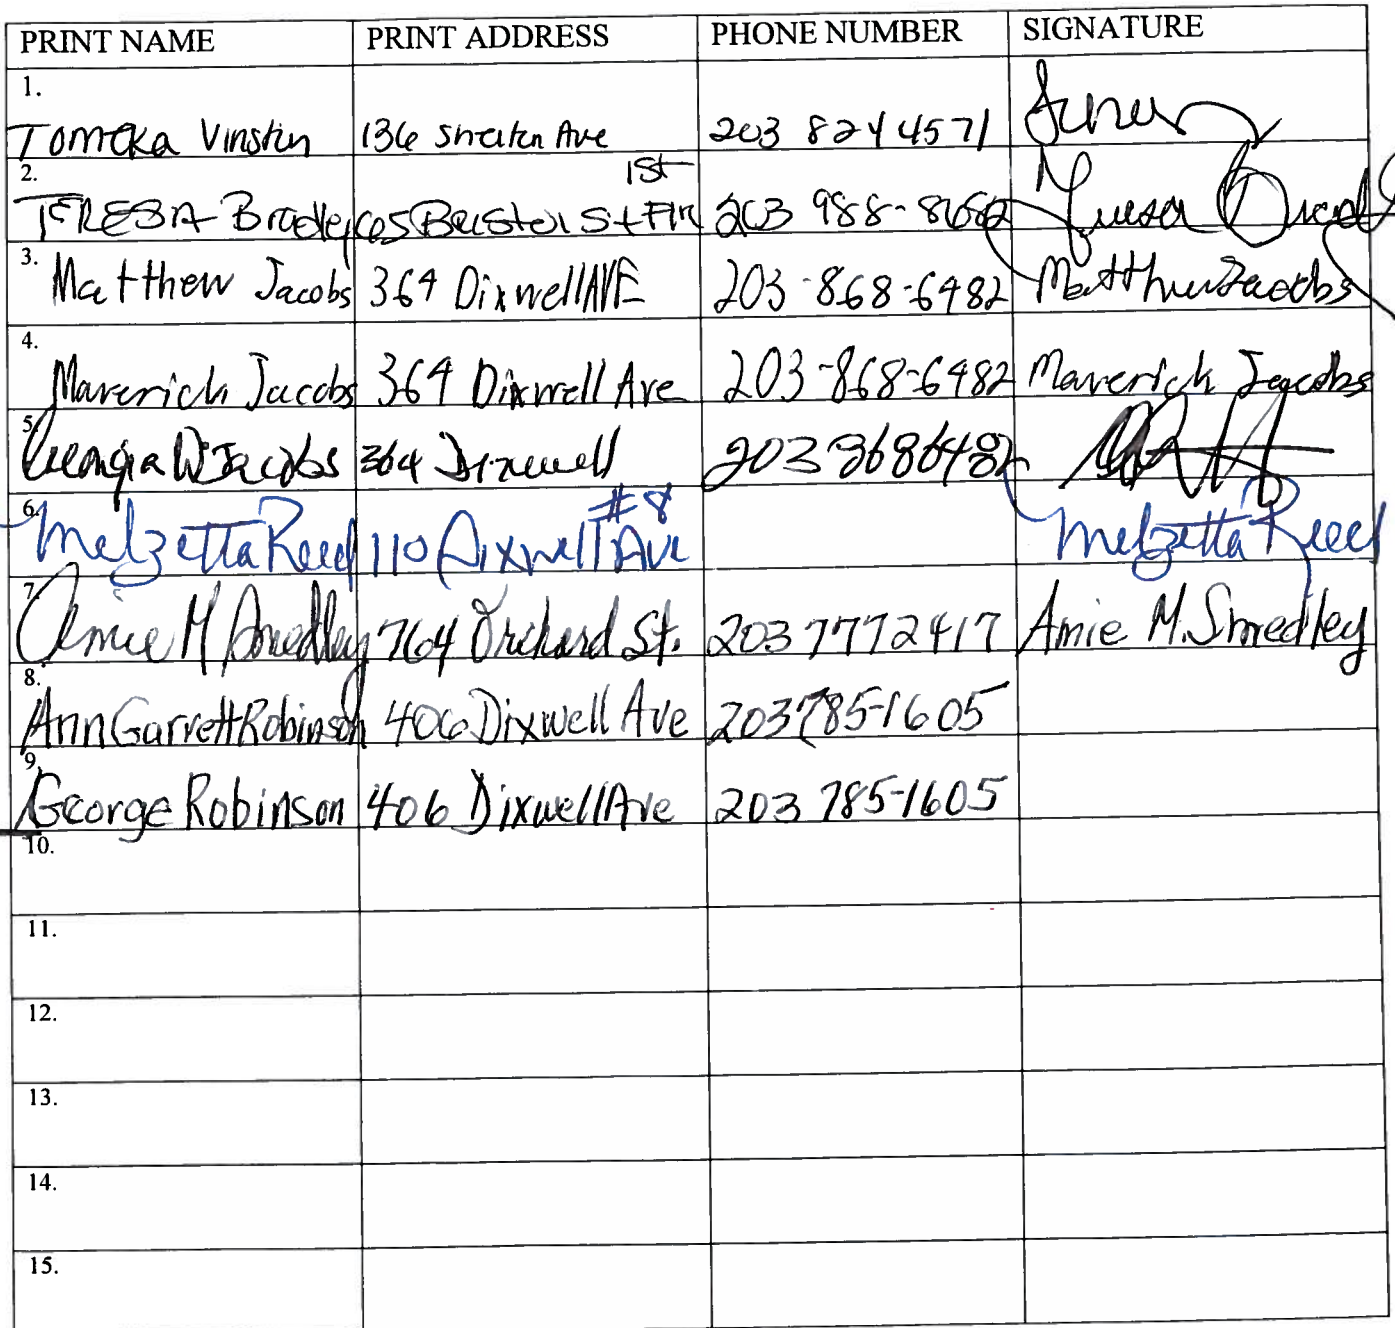 PRINT NAME PRINT ADDRESS PHONE NUMBER SIGNATURE
1.
Tomeka Vinstin 136 Shelton Ave 203 824 4571
2. 1st
TERESA Bradley Bristol St Flr 203 988-8682 Teresa
3.
Matthew Jacobs 364 Dixwell AVE 203-868-6482 Matthew Jacobs
4.
Maverick Jacobs 364 Dixwell Ave 203-868-6482 Maverick Jacobs
5.
Georgia W Jacobs 364 Dixwell 203 8686482
6. #8
Melzetta Reed 110 Dixwell Ave Melzetta Reed
7.
Amie M Smedley 764 Orchard St. 203 7772417 Amie M. Smedley
8.
Ann Garrett Robinson 406 Dixwell Ave 203 785-1605
9.
George Robinson 406 Dixwell Ave 203 785-1605
10.
11.
12.
13.
14.
15.